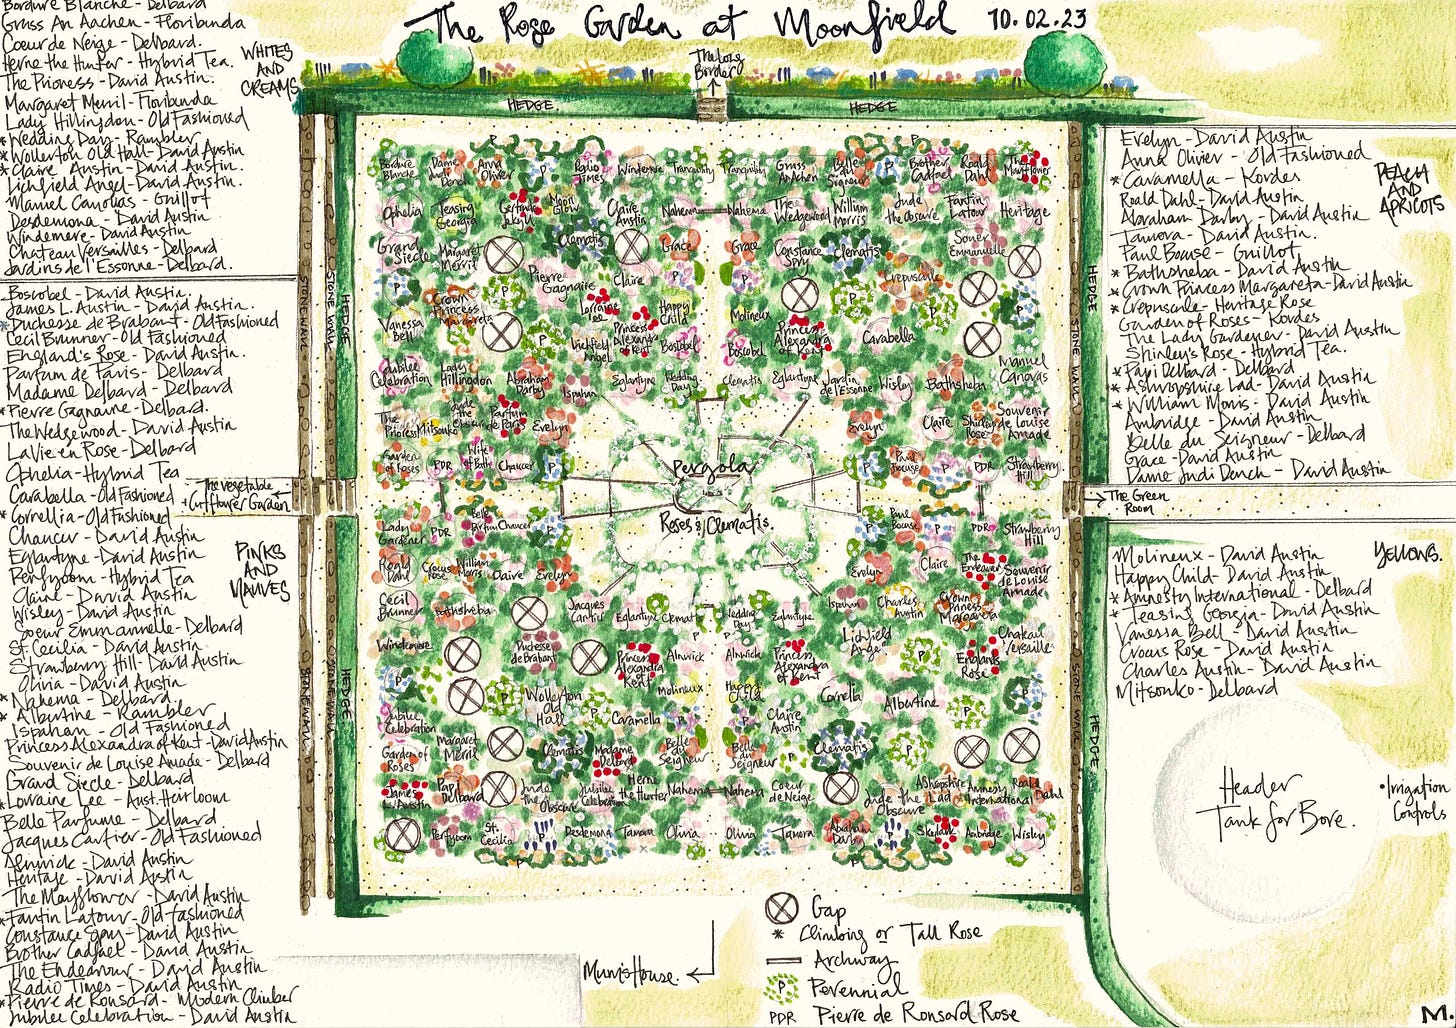 The Rose Garden at Moonfield 10.02.23
Bordure Blanche - Delbard
Gruss An Aachen - Floribunda
Coeur de Neige - Delbard.
Herne the Hunter - Hybrid Tea.
The Prioress - David Austin.
Margaret Merril - Floribunda
Lady Hillingdon - Old Fashioned
* Wedding Day - Rambler
* Wollerton Old Hall - David Austin
* Claire Austin - David Austin.
Lichfield Angel - David Austin.
Manuel Canovas - Guillot
Desdemona - David Austin
Windemere - David Austin
Chateau Versailles - Delbard
Jardins de l'Essonne - Delbard.
WHITES
AND
CREAMS
Boscobel - David Austin
James L. Austin - David Austin.
* Duchesse de Brabant - Old Fashioned
Cecil Brunner - Old Fashioned
England's Rose - David Austin.
Parfum de Paris - Delbard
Madame Delbard - Delbard
* Pierre Gagnaire - Delbard.
The Wedgewood - David Austin
La Vie en Rose - Delbard
Ophelia - Hybrid Tea
Carabella - Old Fashioned
* Cornelia - Old Fashioned
Chaucer - David Austin
Eglantyne - David Austin
Perfyoom - Hybrid Tea
Claire - David Austin
Wisley - David Austin
Soeur Emmanuelle - Delbard
St. Cecilia - David Austin.
Strawberry Hill - David Austin
Olivia - David Austin
* Nahema - Delbard
* Albertine - Rambler
Ispahan - Old Fashioned
Princess Alexandra of Kent - David Austin
Souvenir de Louise Amade - Delbard
Grand Siecle - Delbard
* Lorraine Lee - Aust. Heirloom
Belle Parfume - Delbard
Jacques Cartier - Old Fashioned
Alnwick - David Austin
Heritage - David Austin
The Mayflower - David Austin
* Fantin Latour - Old Fashioned
Constance Spry - David Austin
Brother Cadfael - David Austin
The Endeavour - David Austin
Radio Times - David Austin
* Pierre de Ronsard - Modern Climber
Jubilee Celebration - David Austin
PINKS
AND
MAUVES
The Vegetable
+ Cutflower Garden
The Long
Border
HEDGE
HEDGE
STONE WALL
STONE WALL
HEDGE
HEDGE
STONE WALL
STONE WALL
STONE WALL
HEDGE
STONE WALL
HEDGE
Bordure Blanche
Dame Judi Dench
Anna Olivier
P
Radio Times
Windemere
Tranquility
Tranquility
Gruss An Aachen
Belle du Seigneur
P
Brother Cadfael
Roald Dahl
The Mayflower
Ophelia
Teasing Georgia
Gertrude Jekyll
Moon Glow
Claire Austin
Nahema
Nahema
The Wedgewood
William Morris
Jude the Obscure
Fantin Latour
Heritage
Grand Siecle
Margaret Merril
Clematis
Grace
Grace
Constance Spry
Clematis
Soeur Emmanuelle
Crown Princess Margareta
P
Pierre Gagnaire
Claire
P
P
Crepuscule
P
Vanessa Bell
P
Lorraine Lee
Lichfield Angel
Princess Alexandra of Kent
Happy Child
Boscobel
Molineux
Boscobel
Princess Alexandra of Kent
Carabella
P
Jubilee Celebration
Lady Hillingdon
Abraham Darby
Ispahan
Eglantyne
Wedding Day
Clematis
Eglantyne
Jardin de l'Essonne
Wisley
Bathsheba
Manuel Canovas
The Prioress
Mitsouko
Jude the Obscure
Parfum de Paris
Evelyn
Evelyn
Claire
Shirley's Rose
Souvenir de Louise Amade
Garden of Roses
PDR
Wife of Bath
Chaucer
P
P
Paul Bocuse
P
PDR
Strawberry Hill
Pergola
Roses & Clematis.
Lady Gardener
PDR
Belle Parfum
Chaucer
P
P
Paul Bocuse
PDR
Strawberry Hill
Roald Dahl
Crocus Rose
William Morris
Claire
Evelyn
Evelyn
Claire
The Endeavour
Souvenir de Louise Amade
Cecil Brunner
Bathsheba
Jacques Cartier
Eglantyne
Clematis
Wedding Day
Eglantyne
Ispahan
Charles Austin
Crown Princess Margareta
Windemere
Duchesse de Brabant
Princess Alexandra of Kent
P
Alnwick
P
Alnwick
Princess Alexandra of Kent
Lichfield Angel
P
England's Rose
Chateau Versailles
P
P
Wollerton Old Hall
P
Caramella
Molineux
Happy Child
Claire Austin
Albertine
P
P
Jubilee Celebration
Garden of Roses
Margaret Merril
Clematis
Madame Delbard
Belle du Seigneur
Belle du Seigneur
Clematis
P
James L. Austin
Papi Delbard
Jude the Obscure
Jubilee Celebration
Herne the Hunter
Nahema
Nahema
Coeur de Neige
Jude the Obscure
Ashropshire Lad
Amnesty International
Roald Dahl
Perfyoom
St. Cecilia
P
Desdemona
Tamora
Olivia
Olivia
Tamora
Abraham Darby
P
Skylark
Ambridge
Wisley
P
P
Evelyn - David Austin
Anna Olivier - Old Fashioned
* Caramella - Kordes
Roald Dahl - David Austin
Abraham Darby - David Austin
Tamora - David Austin.
Paul Bocuse - Guillot
* Bathsheba - David Austin
* Crown Princess Margareta - David Austin
* Crepuscule - Heritage Rose
Garden of Roses - Kordes
The Lady Gardener - David Austin
Shirley's Rose - Hybrid Tea.
* Papi Delbard - Delbard
* Ashropshire Lad - David Austin
* William Morris - David Austin
Ambridge - David Austin
Belle du Seigneur - Delbard
Grace - David Austin
Dame Judi Dench - David Austin
PEACH
AND
APRICOTS
The Green
Room
Molineux - David Austin
Happy Child - David Austin
* Amnesty International - Delbard
* Teasing Georgia - David Austin
Vanessa Bell - David Austin
Crocus Rose - David Austin
Charles Austin - David Austin
Mitsouko - Delbard
YELLOWS.
Header
Tank for Bore.
• Irrigation
Controls
Mum's House.
Gap
* Climbing or Tall Rose
Archway
P Perennial
PDR Pierre de Ronsard Rose
M.